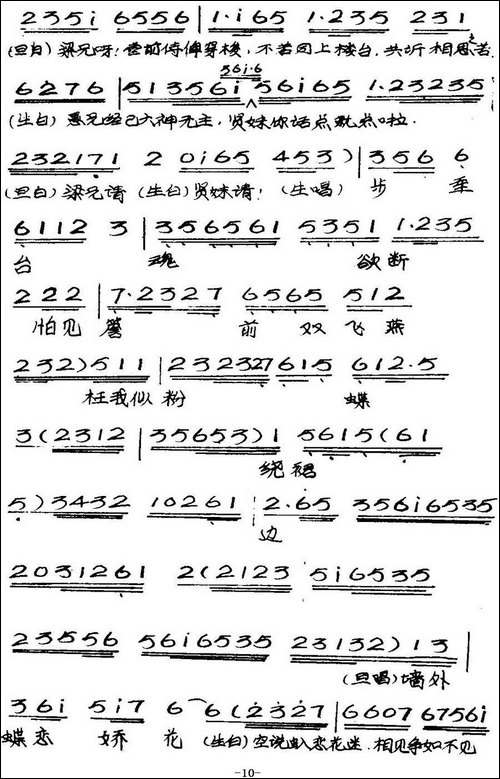 235i 6556 | 1·i65 1·235 231
3ǒi·6
(旦白) 梁兄呀! 堂前侍婢穿梭, 不若同上楼台. 共诉相思苦.
6276 | 513561 56165 1.23235
(生白) 愚兄经已六神无主, 贤妹你话点就点啦.
2321171 2 0i65 453) | 356 6
(旦白) 梁兄请 (生白) 贤妹请! (生唱) 步 垂
6112 3 | 356561 5351 1·235
台 魂 欲断
222 | 7·2327 6565 512
怕见 簷 前 双 飞 燕
232) 511 | 232327 615 612·5
枉我似 粉 蝶
3 (2312 | 35653) 1 5615 (61
绕裙
5) 3432 10261 2·65 35616535
边
2031261 2 (2123 5i6535
23556 56i6535 23132) 13 |
(旦唱) 墙外
36i 5i7 6 6 (2327 | 6607 6756i
蝶恋 娇 花 (生白) 空说恋花迷. 相见争如不见
-10-